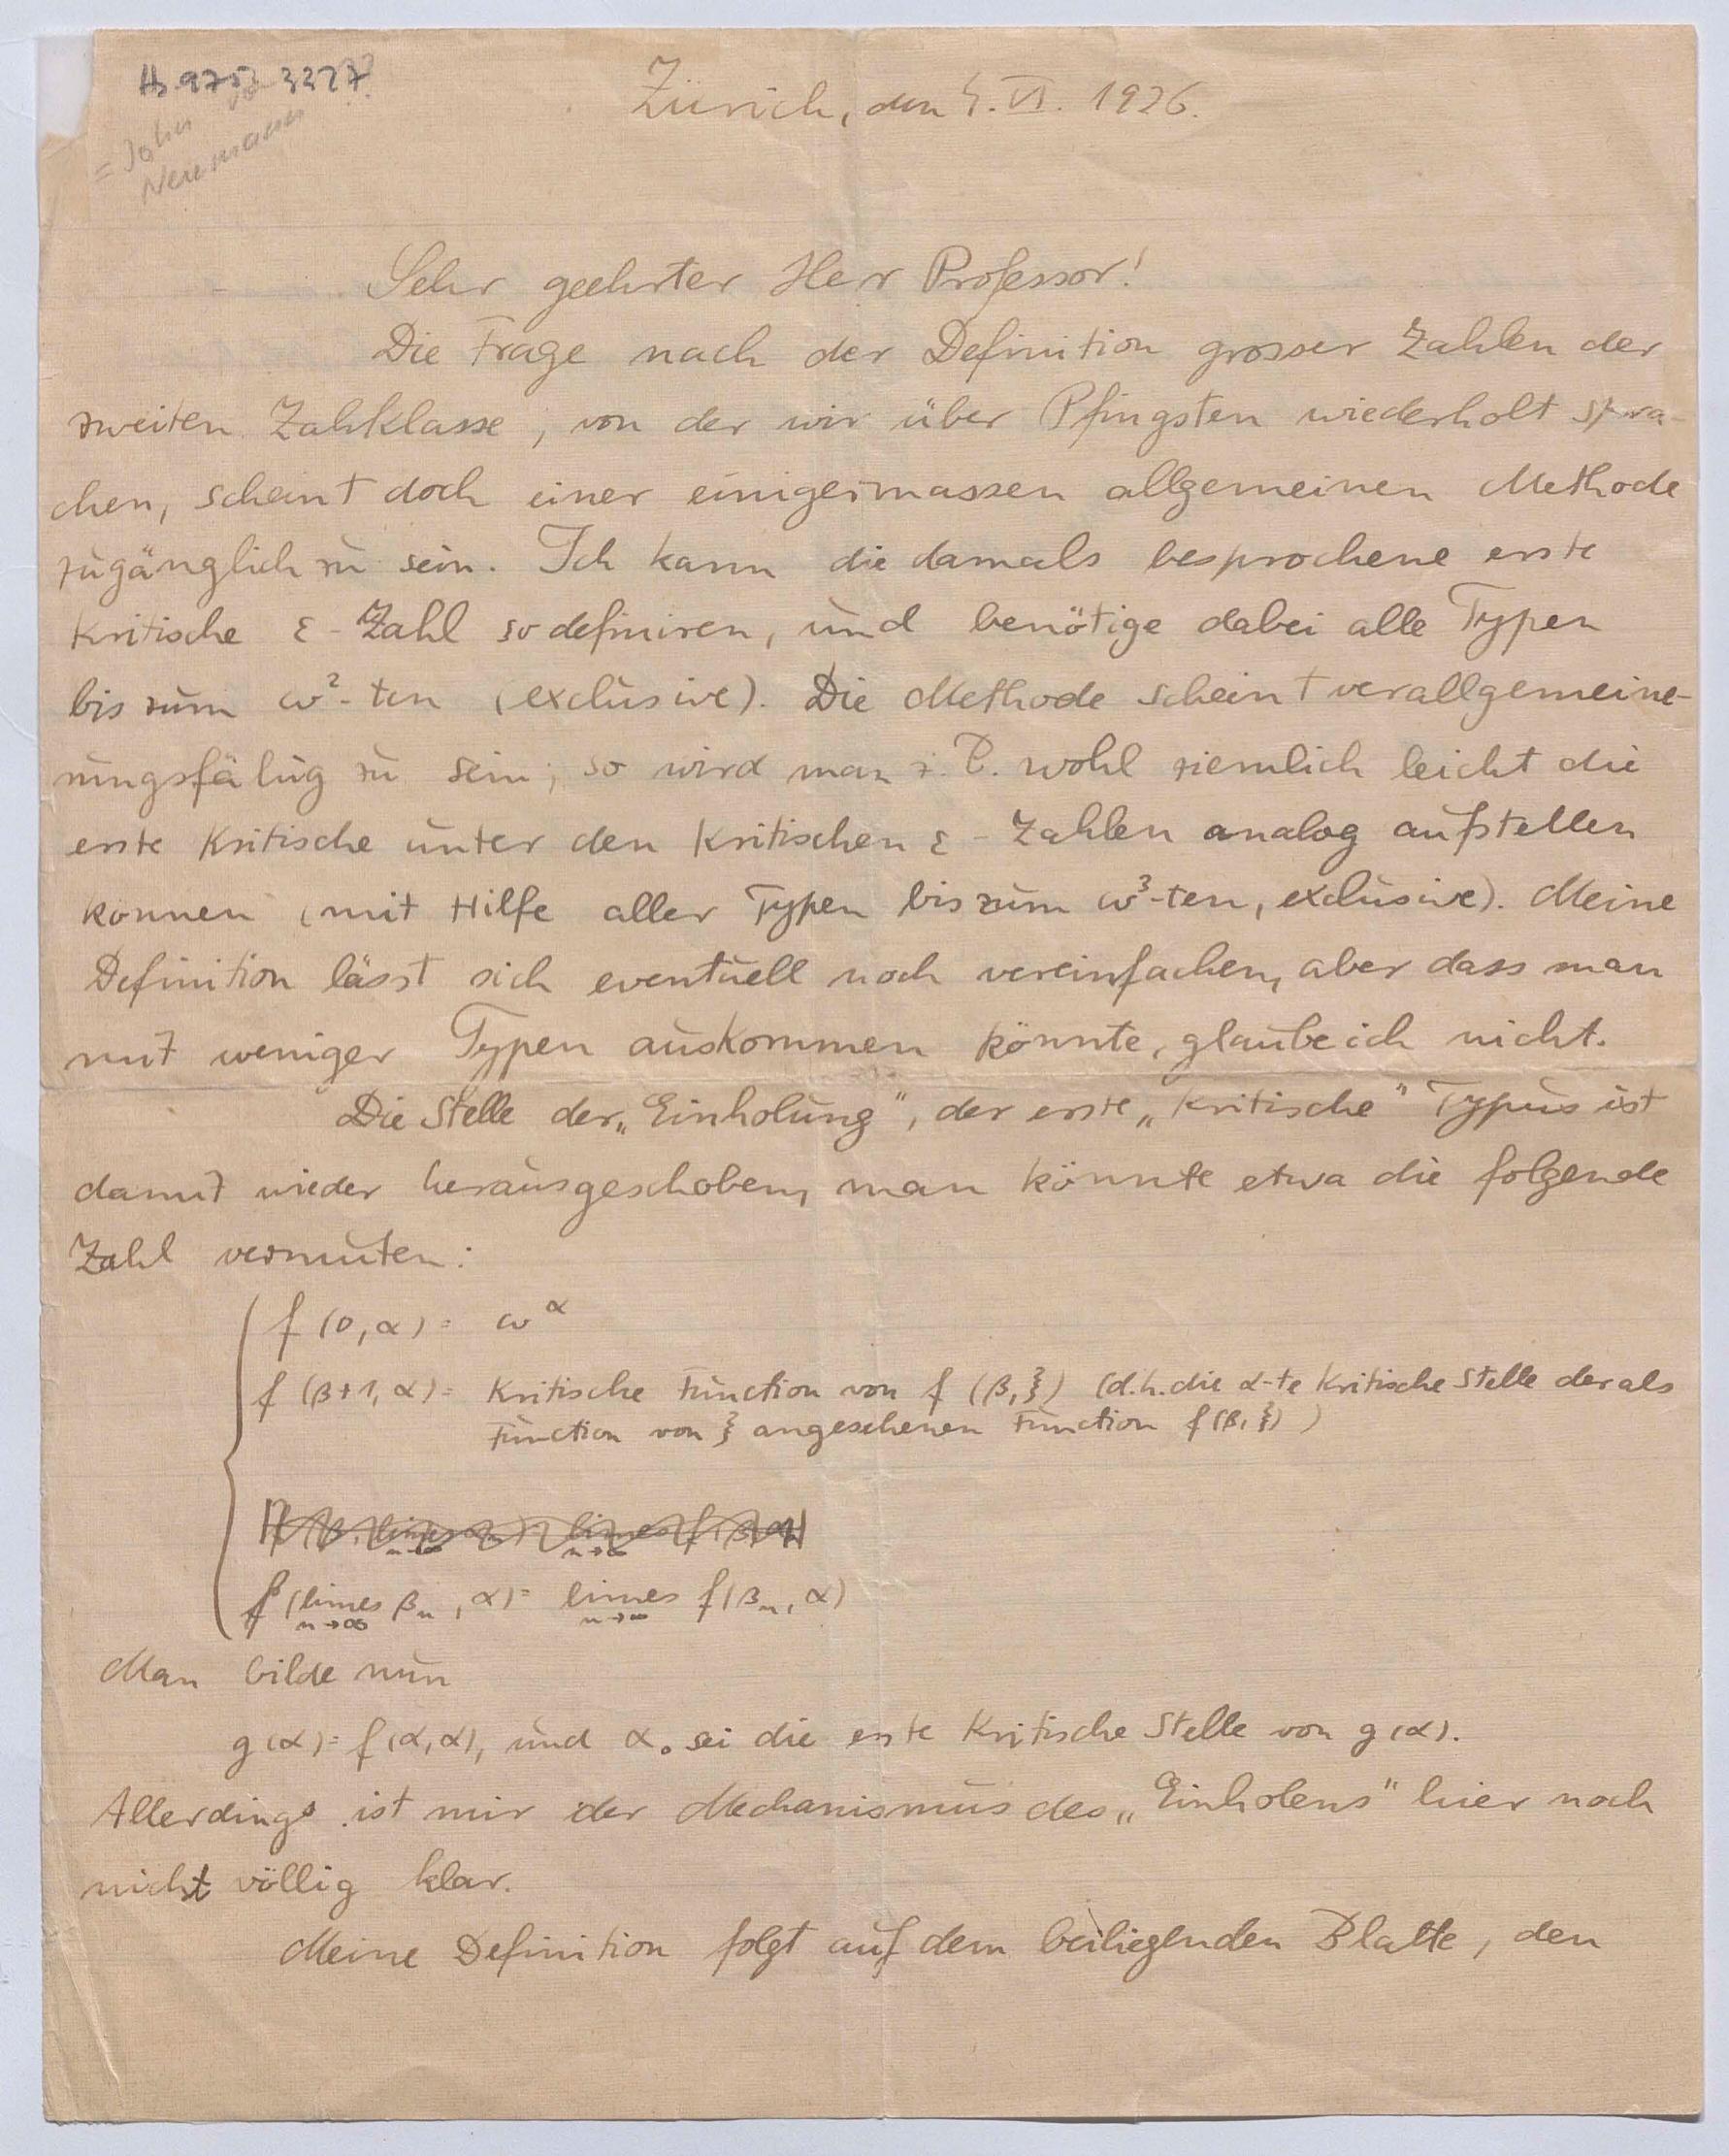 Hs 975 3227
= John v.
Neumann
Zürich, den 4. VI. 1926.
Sehr geehrter Herr Professor!
Die Frage nach der Definition grosser Zahlen der
zweiten Zahlklasse, von der wir über Pfingsten wiederholt spra-
chen, scheint doch einer einigermassen allgemeinen Methode
zugänglich zu sein. Ich kann die damals besprochene erste
kritische ε-Zahl so definiren, und benötige dabei alle Typen
bis zum ω²-ten (exclusive). Die Methode scheint verallgemeine-
rungsfähig zu sein; so wird man z. B. wohl ziemlich leicht die
erste kritische unter den kritischen ε-Zahlen analog aufstellen
können (mit Hilfe aller Typen bis zum ω³-ten, exclusive). Meine
Definition lässt sich eventuell noch vereinfachen, aber dass man
mit weniger Typen auskommen könnte, glaube ich nicht.
Die Stelle der „Einholung", der erste „kritische" Typus ist
damit wieder herausgeschoben, man könnte etwa die folgende
Zahl vermuten:
f(0, α) = ω^α
f(β+1, α) = kritische Function von f(β, ξ) (d.h. die α-te kritische Stelle der als
Function von ξ angesehenen Function f(β, ξ))
f(limes β_n, α) = limes f(β_n, α)
n→∞ n→∞
Man bilde nun
g(α) = f(α, α), und α₀ sei die erste kritische Stelle von g(α).
Allerdings ist mir der Mechanismus des „Einholens" hier noch
nicht völlig klar.
Meine Definition folgt auf dem beiliegenden Blatte, den